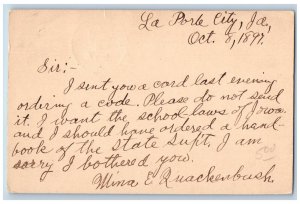 La Porte City, Ia,
Oct. 8, 1891.
Sir;-
I sent you a card last evening
ordering a code. Please do not send
it. I want the school laws of Iowa
and I should have ordered a hand
book of the State Supt. I am
sorry I bothered you.
Mina E Quackenbush